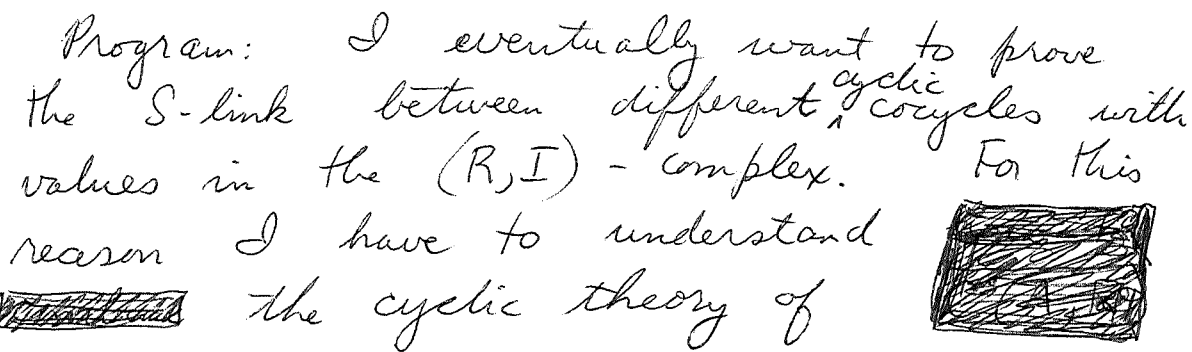 Program: I eventually want to prove
the S-link between different cyclic cocycles with
values in the (R,I)-complex. For this
reason I have to understand
the cyclic theory of